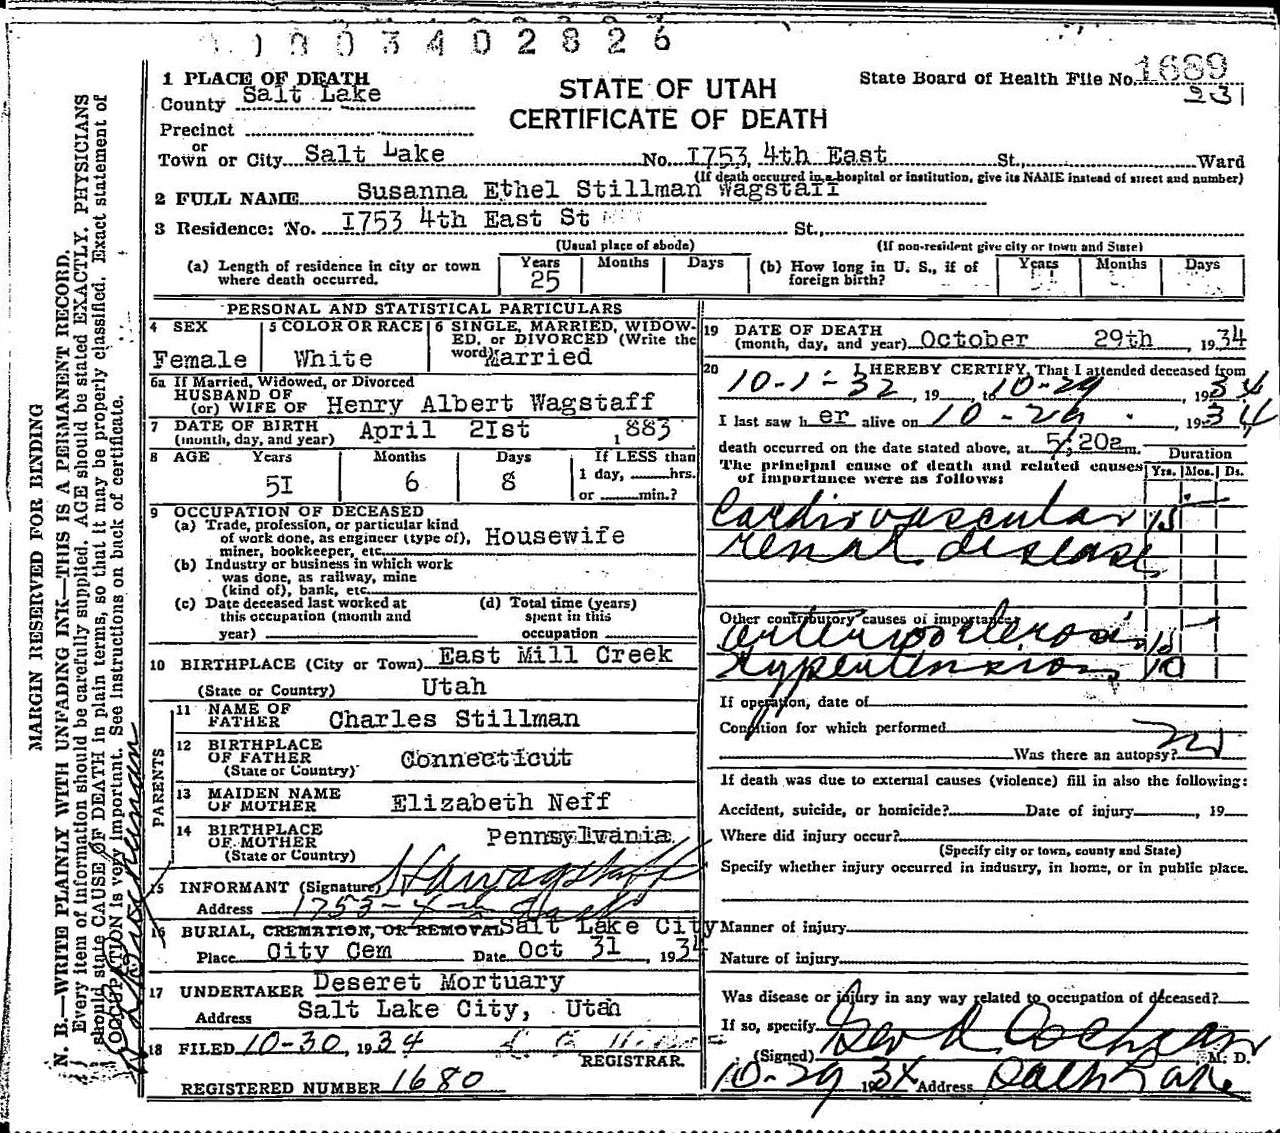 0003402826
1 PLACE OF DEATH
County Salt Lake
STATE OF UTAH
CERTIFICATE OF DEATH
State Board of Health File No. 1689
231
Precinct
or
Town or City Salt Lake No. 1753, 4th East St. Ward
(If death occurred in a hospital or institution, give its NAME instead of street and number)
2 FULL NAME Susanna Ethel Stillman Wagstaff
3 Residence: No. 1753 4th East St St.,
(Usual place of abode) (If non-resident give city or town and State)
(a) Length of residence in city or town where death occurred. Years 25 Months Days
(b) How long in U. S., if of foreign birth? Years Months Days
PERSONAL AND STATISTICAL PARTICULARS
4 SEX Female
5 COLOR OR RACE White
6 SINGLE, MARRIED, WIDOWED, or DIVORCED (Write the word) Married
6a If Married, Widowed, or Divorced
HUSBAND OF
(or) WIFE OF Henry Albert Wagstaff
7 DATE OF BIRTH
(month, day, and year) April 21st 1883
8 AGE Years 51 Months 6 Days 8 If LESS than
1 day, hrs.
or min.?
9 OCCUPATION OF DECEASED
(a) Trade, profession, or particular kind
of work done, as engineer (type of),
miner, bookkeeper, etc. Housewife
(b) Industry or business in which work
was done, as railway, mine
(kind of), bank, etc.
(c) Date deceased last worked at
this occupation (month and
year)
(d) Total time (years)
spent in this
occupation
10 BIRTHPLACE (City or Town) East Mill Creek
(State or Country) Utah
PARENTS
11 NAME OF
FATHER Charles Stillman
12 BIRTHPLACE
OF FATHER Connecticut
(State or Country)
13 MAIDEN NAME
OF MOTHER Elizabeth Neff
14 BIRTHPLACE
OF MOTHER Pennsylvania
(State or Country)
15 INFORMANT (Signature) H A Wagstaff
Address 1753-4th East
16 BURIAL, CREMATION, OR REMOVAL Salt Lake City
Place City Cem Date Oct 31, 1934
17 UNDERTAKER Deseret Mortuary
Address Salt Lake City, Utah
18 FILED 10-30, 1934
REGISTRAR.
REGISTERED NUMBER 1680
19 DATE OF DEATH
(month, day, and year) October 29th, 1934
20 I HEREBY CERTIFY, That I attended deceased from
10-1-32, 19 to 10-29, 1934
I last saw her alive on 10-29, 1934
death occurred on the date stated above, at 5/20a m.
The principal cause of death and related causes
of importance were as follows:
Duration
Yrs. Mos. Ds.
Cardiovascular 15
renal disease
Other contributory causes of importance:
arteriosclerosis 15
Hypertension 10
If operation, date of
Condition for which performed
Was there an autopsy? no
If death was due to external causes (violence) fill in also the following:
Accident, suicide, or homicide? Date of injury, 19
Where did injury occur?
(Specify city or town, county and State)
Specify whether injury occurred in industry, in home, or in public place.
Manner of injury
Nature of injury
Was disease or injury in any way related to occupation of deceased?
If so, specify
(Signed) Geo A Cochran M. D.
10-29 1934 Address Salt Lake
MARGIN RESERVED FOR BINDING
N. B.—WRITE PLAINLY WITH UNFADING INK—THIS IS A PERMANENT RECORD.
Every item of information should be carefully supplied. AGE should be stated EXACTLY. PHYSICIANS
should state CAUSE OF DEATH in plain terms, so that it may be properly classified. Exact statement of
OCCUPATION is very important. See instructions on back of certificate.